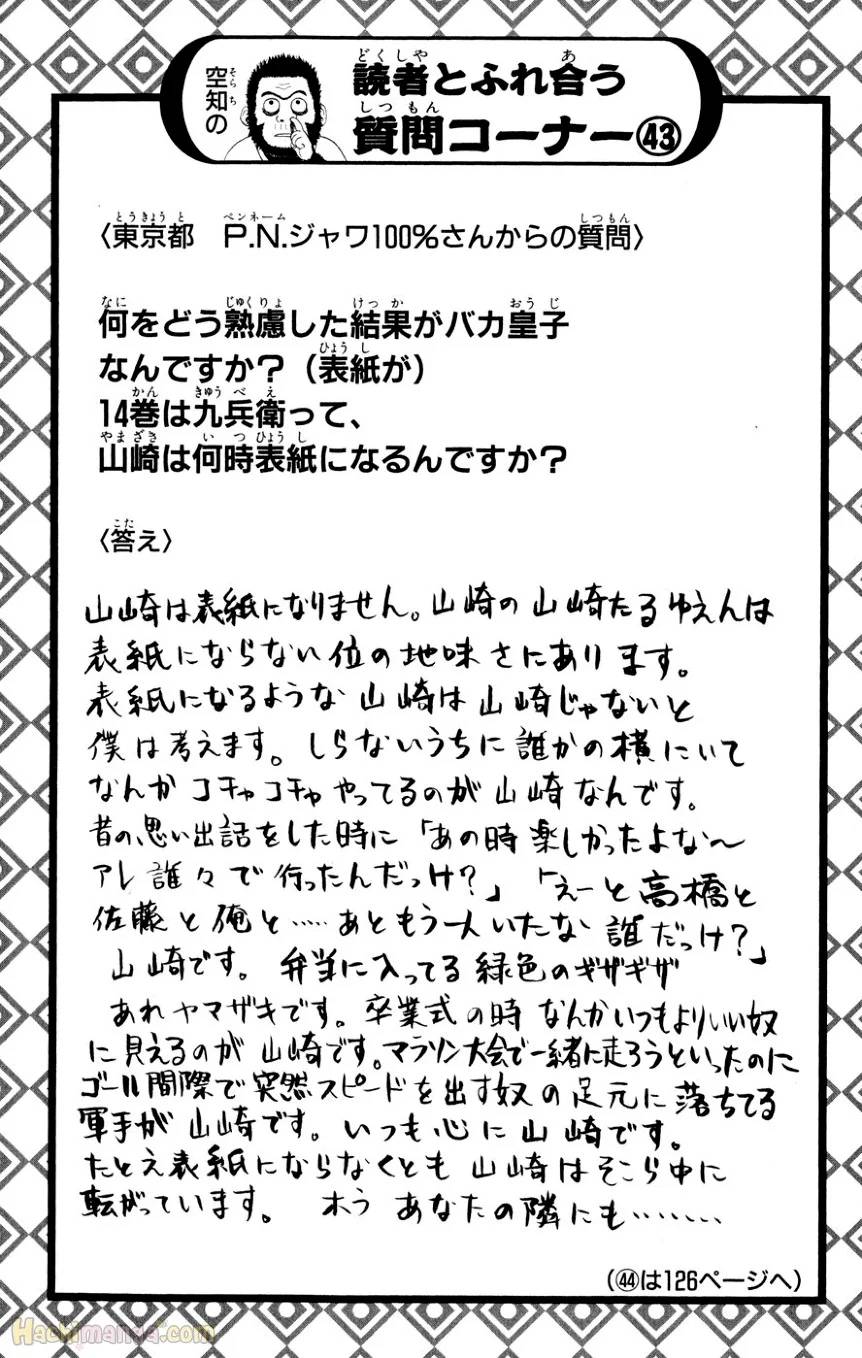 空知の
読者とふれ合う
質問コーナー㊸
〈東京都　P.N.ジャワ100%さんからの質問〉
何をどう熟慮した結果がバカ皇子
なんですか？（表紙が）
14巻は九兵衛って、
山崎は何時表紙になるんですか？
〈答え〉
山崎は表紙になりません。山崎の山崎たるゆえんは
表紙にならない位の地味さにあります。
表紙になるような山崎は山崎じゃないと
僕は考えます。しらないうちに誰かの横にいて
なんかコチャコチャやってるのが山崎なんです。
昔の思い出話をした時に「あの時楽しかったよな〜
アレ誰々で行ったんだっけ？」「えーと高橋と
佐藤と俺と……あともう一人いたな誰だっけ？」
山崎です。弁当に入ってる緑色のギザギザ
あれヤマザキです。卒業式の時なんかいつもよりいい奴
に見えるのが山崎です。マラソン大会で一緒に走ろうといったのに
ゴール間際で突然スピードを出す奴の足元に落ちてる
軍手が山崎です。いつも心に山崎です。
たとえ表紙にならなくとも山崎はそこら中に
転がっています。　ホラ　あなたの隣にも………
（㊹は126ページへ）
Hachimanga.com